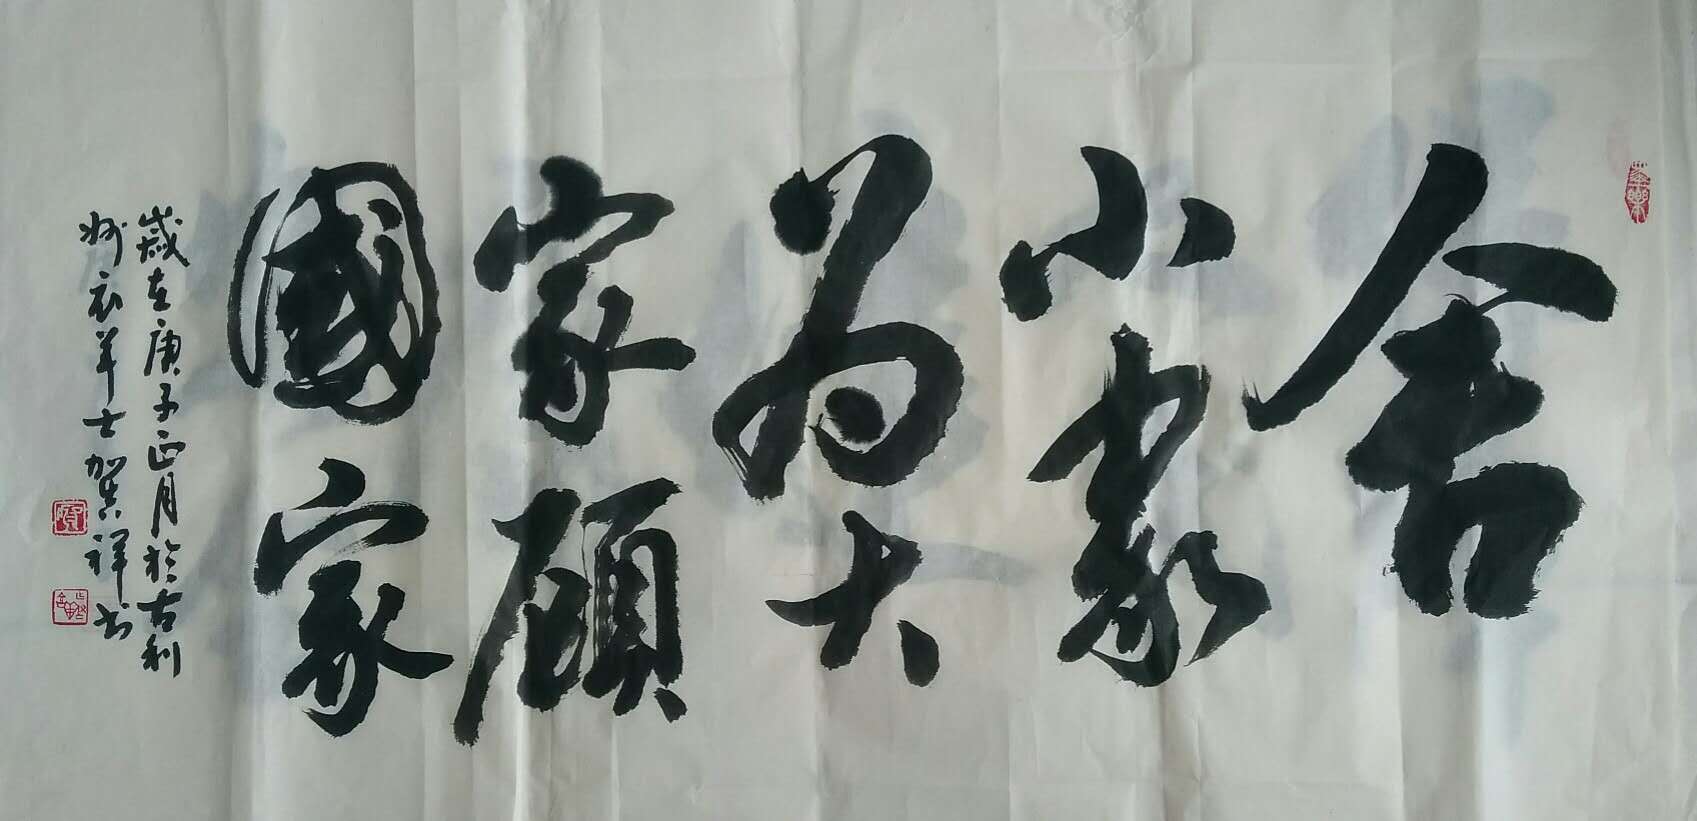 舍
小家
为大
家顾
國家
歲在庚子正月於古利
州衣羊士賀祥书